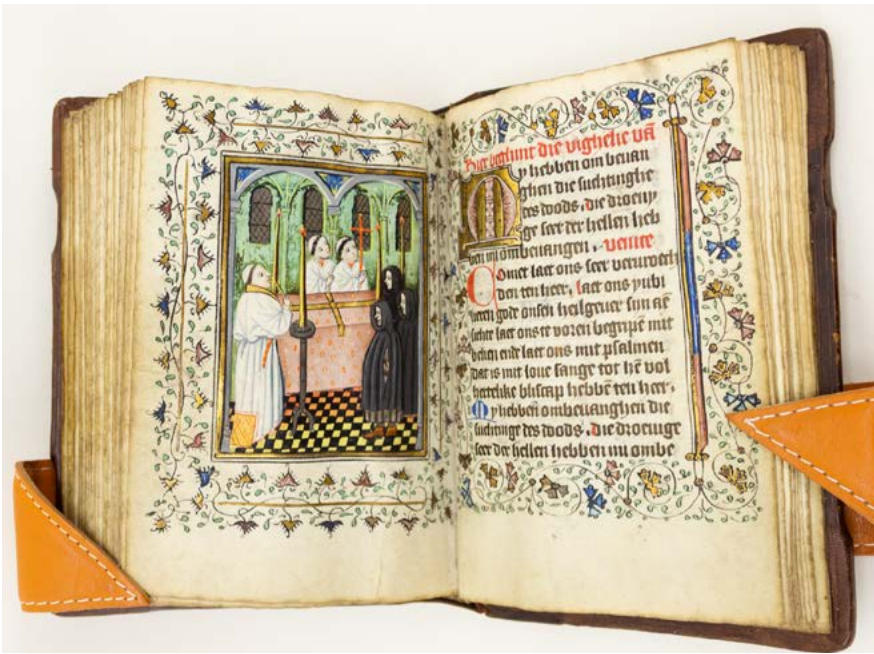 Hier beghint die vighelie vā
My hebben om bevan
ghen die suchtinghe
des doods, die droeuy
ge seer der hellen heb
ben mi ombeuangen. venite
Comet laet ons seer veruroech
den ten heer, laet ons yubi
leren gode onsen heilgeuer sijn āē
sichte laet ons te voren begripē mit
belien ende laet ons mit psalmen
dat is mit loue sange tot hē vol
hertelike bliscap hebbē ten heer.
My hebben ombeuanghen die
suchtinge des doods, die droeuige
seer der hellen hebben mi ombe